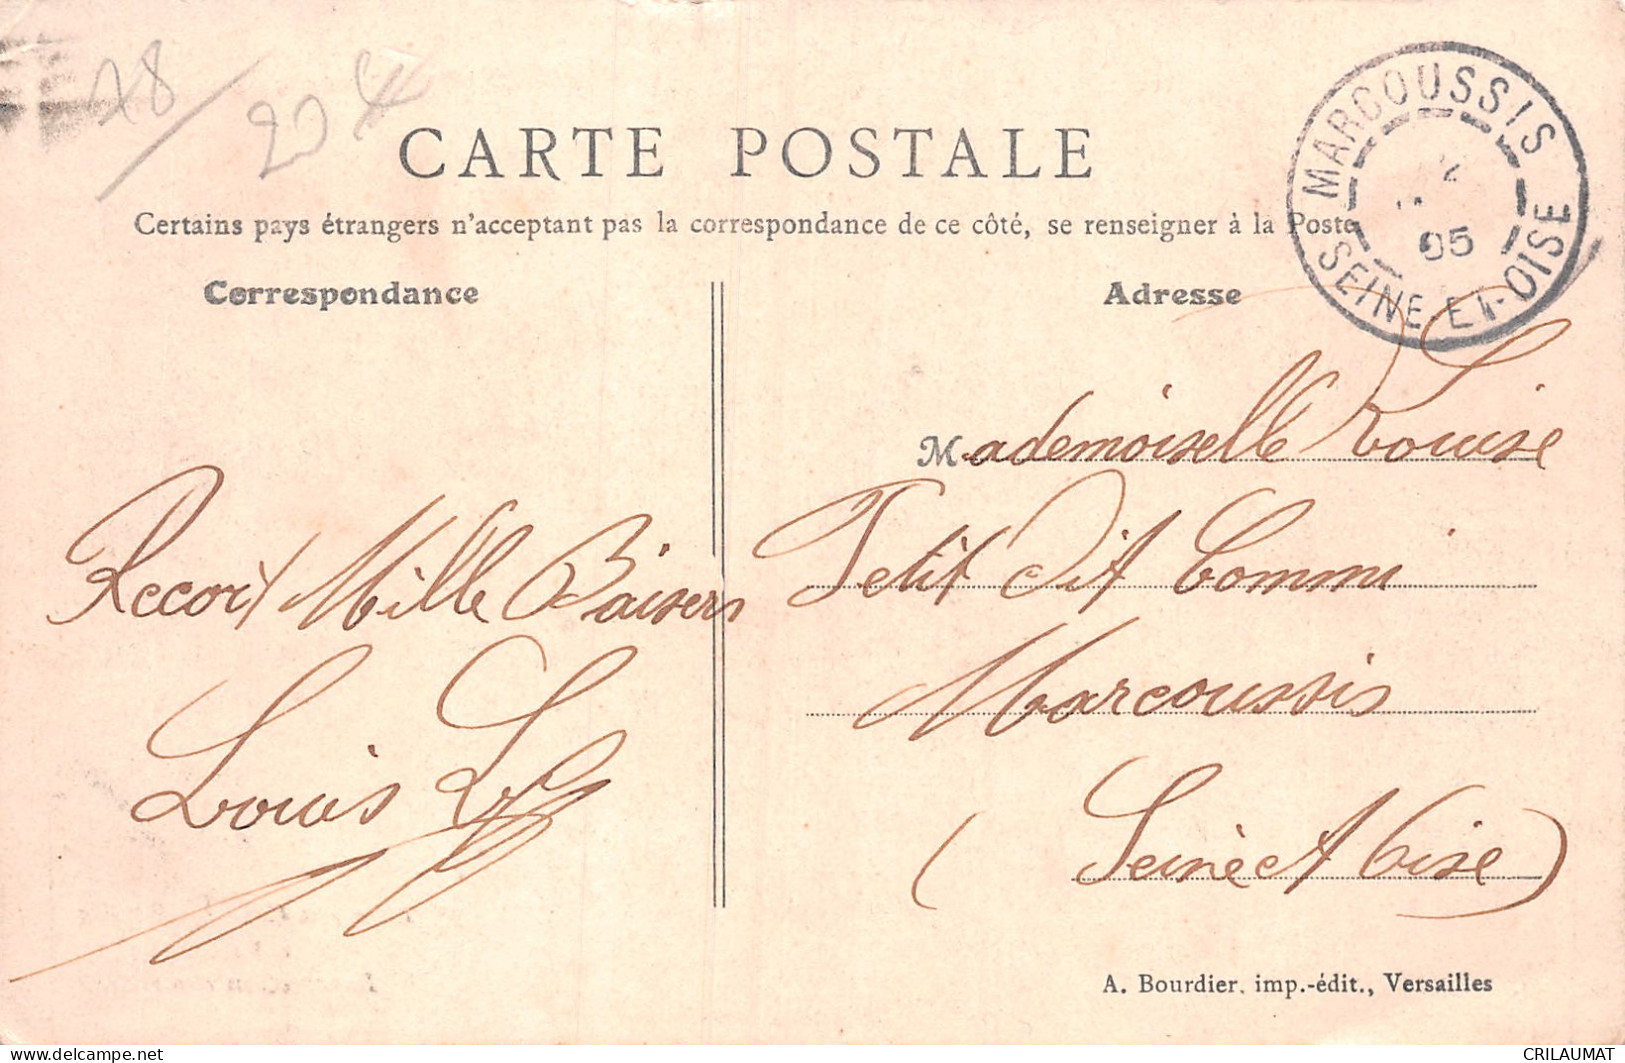 18/20
CARTE POSTALE
MARCOUSSIS
05
SEINE-ET-OISE
Certains pays étrangers n'acceptant pas la correspondance de ce côté, se renseigner à la Poste
Correspondance
Adresse
Mademoiselle Louise
Petit Dit Commi
Marcoussis
(Seine et Oise)
Recoit Mille Baisers
Louis L
A. Bourdier, imp.-édit., Versailles
delcampe.net
CRILAUMAT